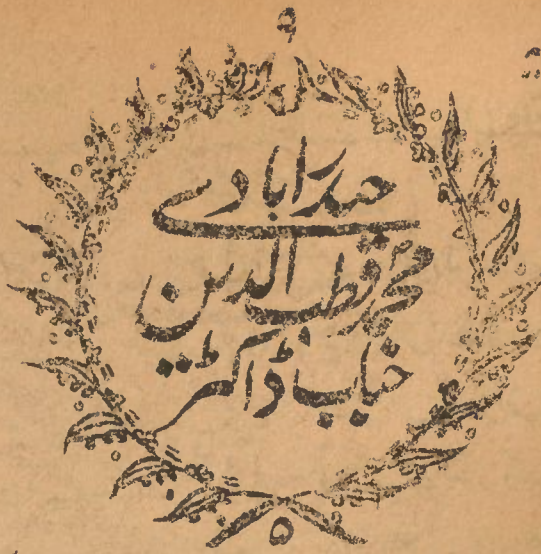 حیدرابادے
محمد قطب الدین
جناب ڈاکٹر